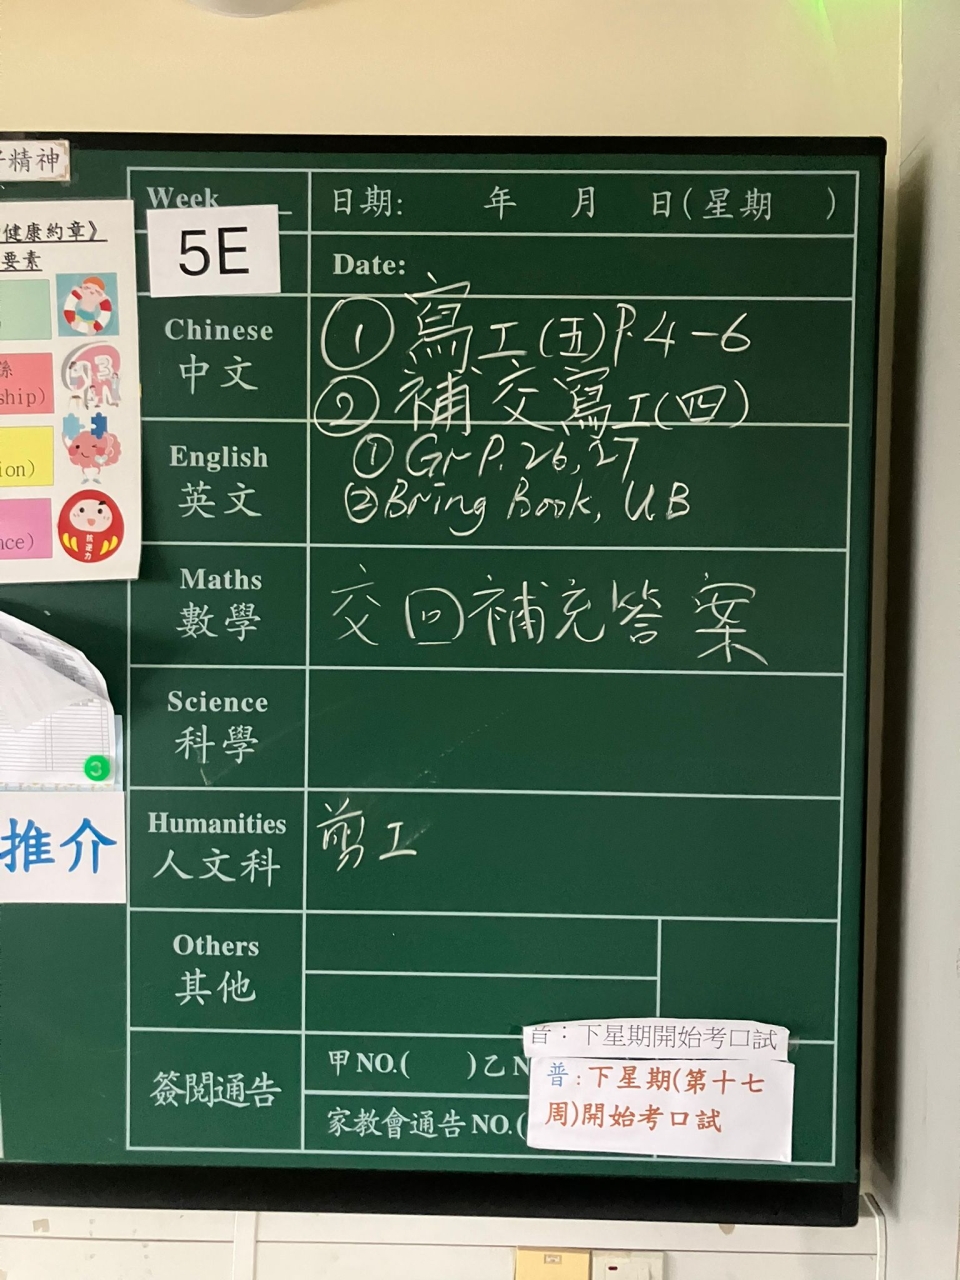 精神
健康約章》
要素
係
ship)
ion)
抗逆力
nce)
推介
Week
5E
日期: 年 月 日(星期 )
Date:
Chinese
中文
① 寫工(五)P.4-6
② 補交寫工(四)
English
英文
① Gr P.26,27
② Bring Book, UB
Maths
數學
交回補充答案
Science
科學
Humanities
人文科
剪工
Others
其他
簽閱通告
甲NO.( )乙N
家教會通告NO.(
普：下星期開始考口試
普:下星期(第十七
周)開始考口試